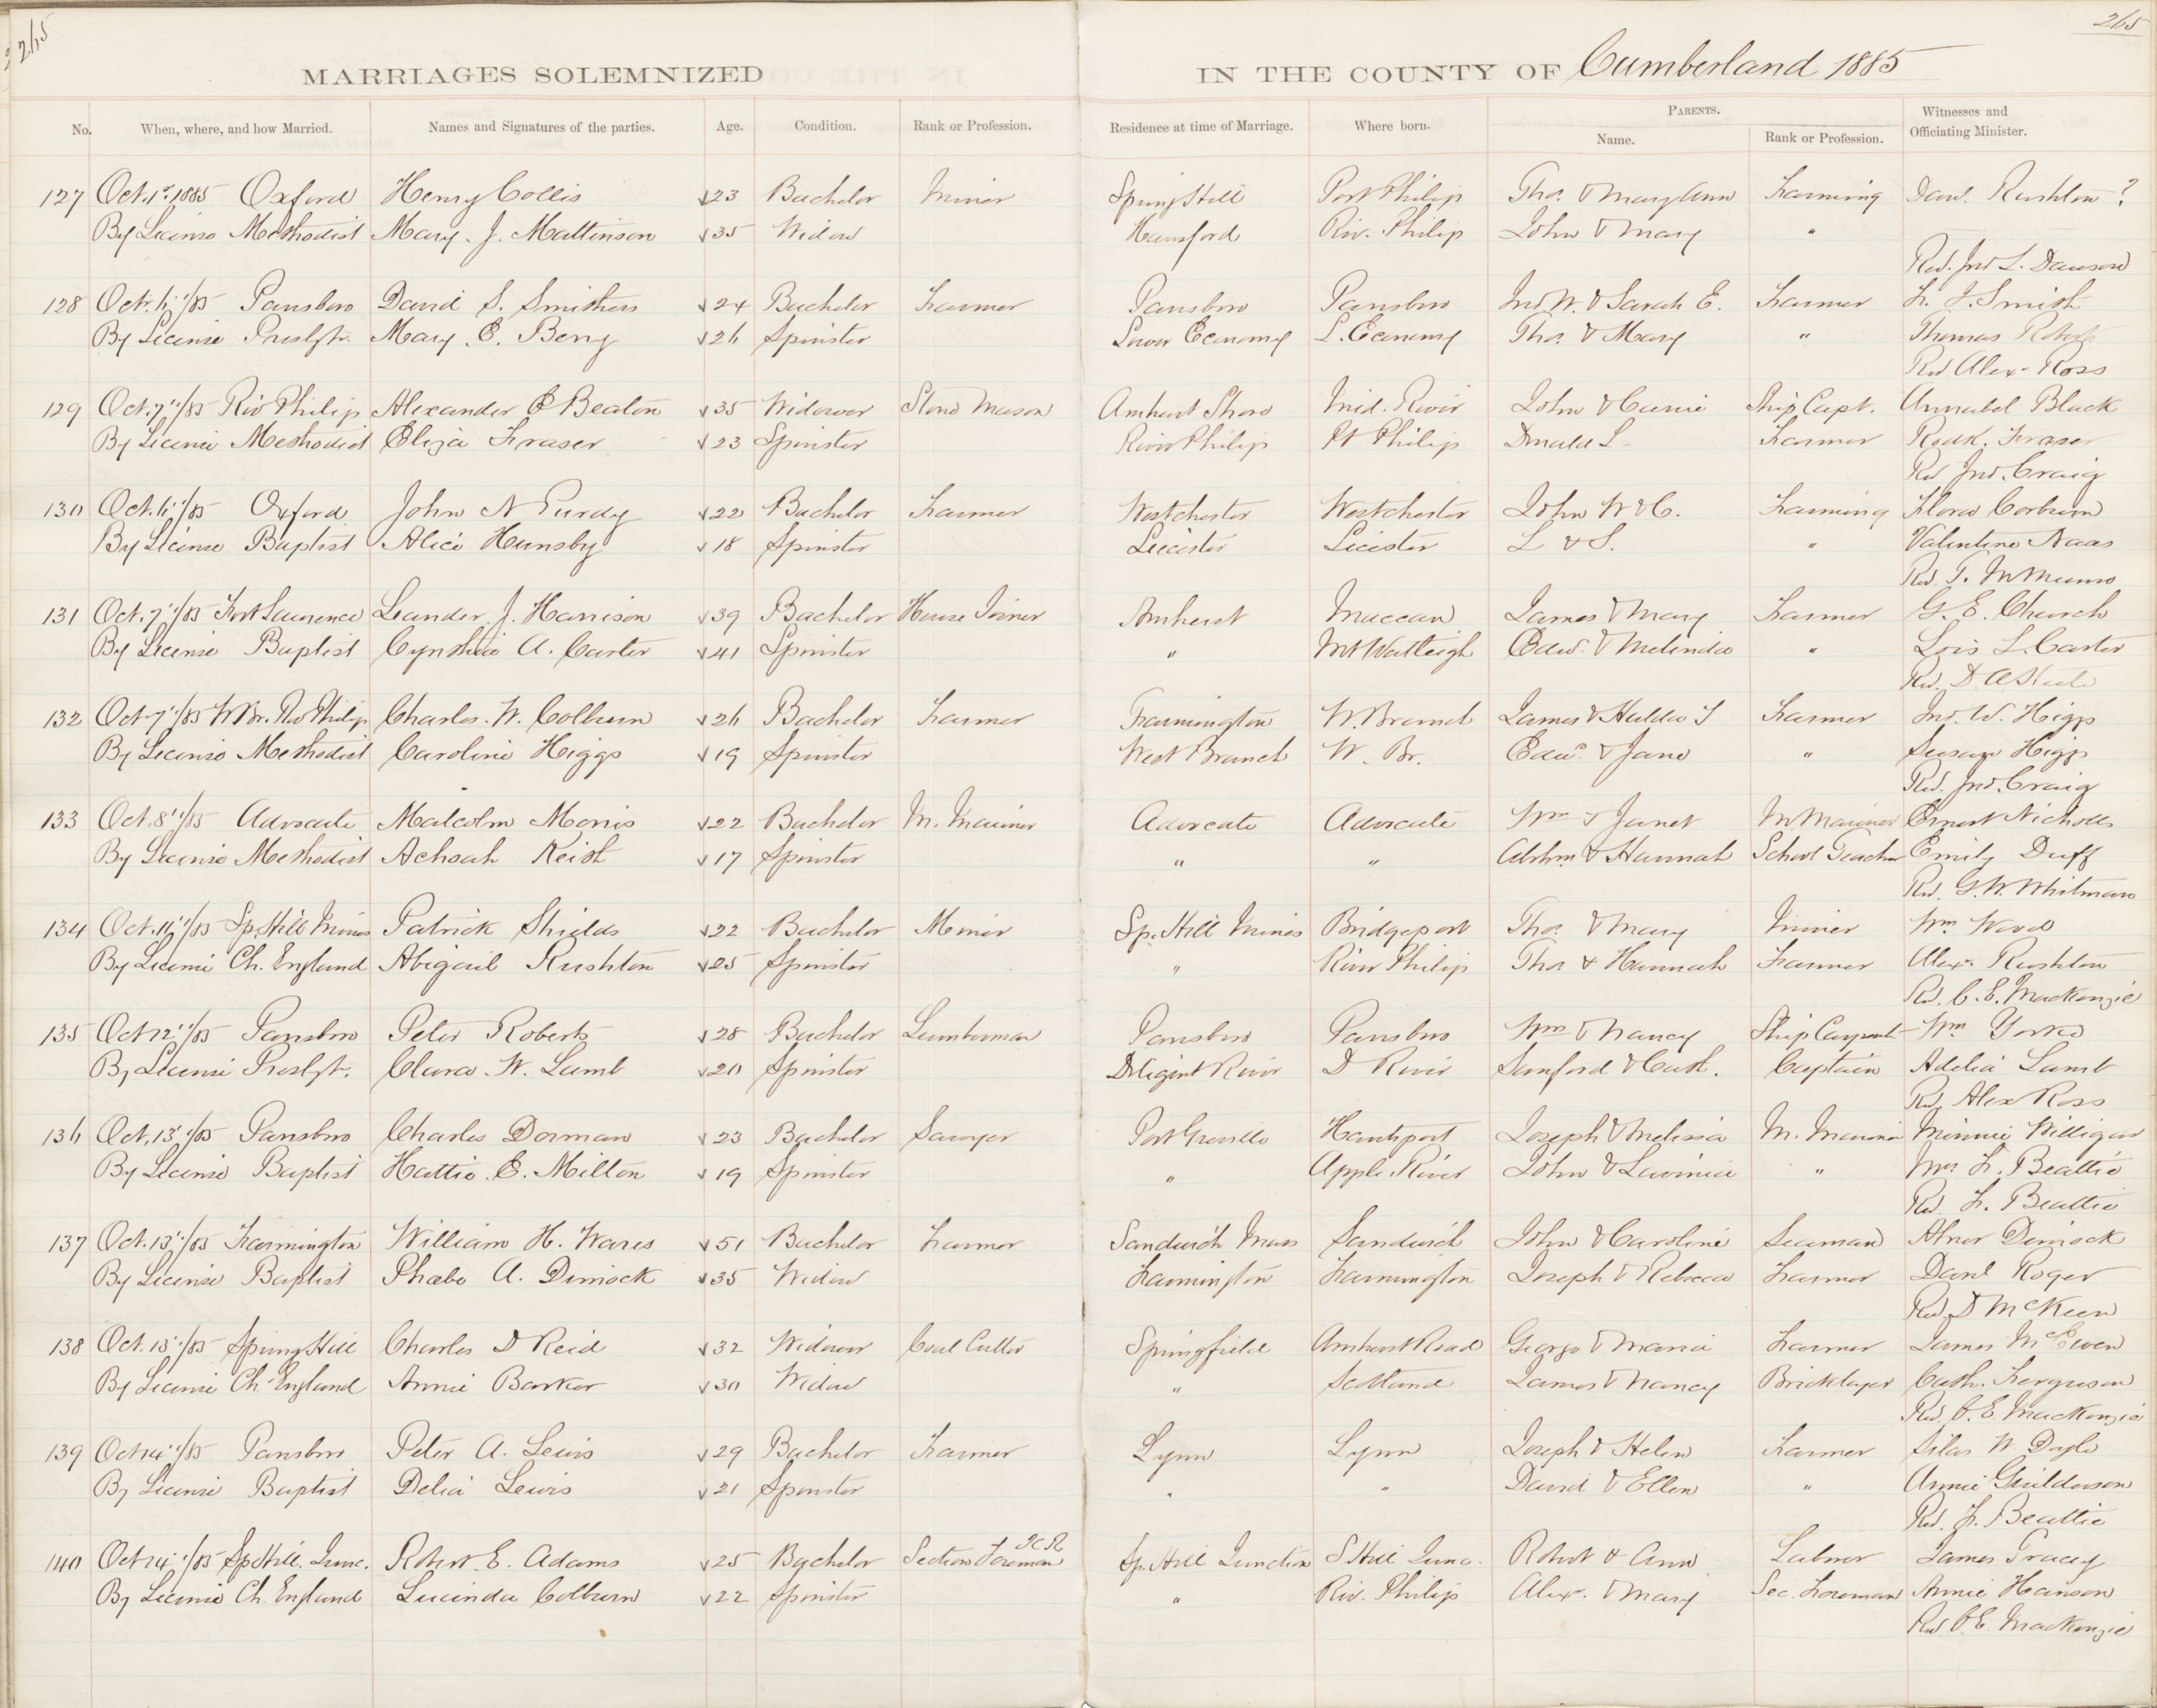 265
265
MARRIAGES SOLEMNIZED IN THE COUNTY OF Cumberland 1885
No. When, where, and how Married. Names and Signatures of the parties. Age. Condition. Rank or Profession. Residence at time of Marriage. Where born. PARENTS. Name. Rank or Profession. Witnesses and Officiating Minister.
127 Oct. 1st 1885 Oxford Henry Collis 23 Bachelor Miner Spring Hill Port Philip Tho. & Mary Ann Farming Davd. Rushton ?
By License Methodist Mary. J. Mattinson 35 Widow Hansford Riv. Philip John & Mary "
Rev. Jno L. Dawson
128 Oct. 6"/85 Parrsboro David S. Smithers 24 Bachelor Farmer Parrsboro Parrsboro Jno W. & Sarah E. Farmer F. J. Smith
By License Presbytr. Mary. E. Berry 26 Spinster Lower Economy L. Economy Tho. & Mary " Thomas
Rev. Alex. Ross
129 Oct. 7"/85 Riv Philip Alexander Beaton 35 Widower Stone Mason Amherst Shore Mid. River John & Carrie Ship Capt. Annabel Black
By License Methodist Eliza Fraser 23 Spinster River Philip Pt Philip Donald L Farmer Rodk. Fraser
Rev Jno. Craig
130 Oct. 6"/85 Oxford John N Purdy 22 Bachelor Farmer Westchester Westchester John W & C. Farming Flora Corbum
By License Baptist Alice Hunsby 18 Spinster Leicester Leicester L & S. " Valentine Naas
Rev. T. M Munro
131 Oct. 7"/85 Fort Laurence Leander. J. Harrison 39 Bachelor House Joiner Amherst Maccan James & Mary Farmer G. E. Church
By License Baptist Cynthia A. Carter 41 Spinster " Mt Watleigh Edw. & Melinda " Lois L. Carter
Rev. D. A Steele
132 Oct 7"/85 W Br. Riv Philip Charles. W. Colburn 26 Bachelor Farmer Farmington W. Branch James & Hulda J Farmer Jno. W. Higgs
By License Methodist Caroline Higgs 19 Spinster West Branch W. Br. Edwd. & Jane " Susan Higgs
Rev. Jno. Craig
133 Oct. 8"/85 Advocate Malcolm Morris 22 Bachelor M. Mariner Advocate Advocate Wm & Janet M Mariner Ernest Nicholls
By License Methodist Achsah Reist 17 Spinster " " Abrhm & Hannah School Teacher Emily Duff
Rev. G. W. Whitman
134 Oct. 11"/85 Sp. Hill Mines Patrick Shields 22 Bachelor Miner Sp. Hill Mines Bridgeport Tho. & Mary Miner Wm Wood
By License Ch. England Abigail Rushton 25 Spinster " River Philip Tho & Hannah Farmer Alex. Rushton
Rev. C. E. MacKenzie
135 Oct 12"/85 Parrsboro Peter Roberts 28 Bachelor Lumberman Parrsboro Parrsboro Wm & Nancy Ship Carpent Wm Yorke
By License Presbytr. Clara. W. Lamb 20 Spinster Diligent River D River Sanford & Cath. Captain Adelia Lamb
Rev. Alex Ross
136 Oct. 13"/85 Parrsboro Charles Dorman 23 Bachelor Sawyer Port Greville Hantsport Joseph & Melissa M. Mariner Minnie Willigar
By License Baptist Hattie. E. Milton 19 Spinster " Apple River John & Lavinia " Mrs F. Beattie
Rev. F. Beattie
137 Oct. 13"/85 Farmington William H. Wares 51 Bachelor Farmer Sandwich Mass Sandwich John & Caroline Seaman Abner Dimock
By License Baptist Phæbe A. Dimock 35 Widow Farmington Farmington Joseph & Rebecca Farmer Danl Roger
Rev. D McKeen
138 Oct. 13"/85 Spring Hill Charles D Reid 32 Widower Coal Cutter Springfield Amherst Road George & Maria Farmer James McEwen
By License Ch England Annie Barker 30 Widow " Scotland James & Nancy Bricklayer Cath. Ferguson
Rev. C. E. MacKenzie
139 Oct 14"/85 Parrsboro Peter A. Lewis 29 Bachelor Farmer Lynn Lynn Joseph & Helen Farmer Silas W Doyle
By License Baptist Delia Lewis 21 Spinster " " David & Ellen " Annie Guilderson
Rev. F. Beattie
140 Oct 14"/85 Sp Hill. Junc. Robert. E. Adams 25 Bachelor Section Foreman ICR Sp. Hill Junction S Hill Junc. Robert & Ann Laborer James Tracey
By License Ch. England Lucinda Colburn 22 Spinster " Riv. Philip Alex. & Mary Sec. Foreman Annie Hanson
Rev C. E. MacKenzie